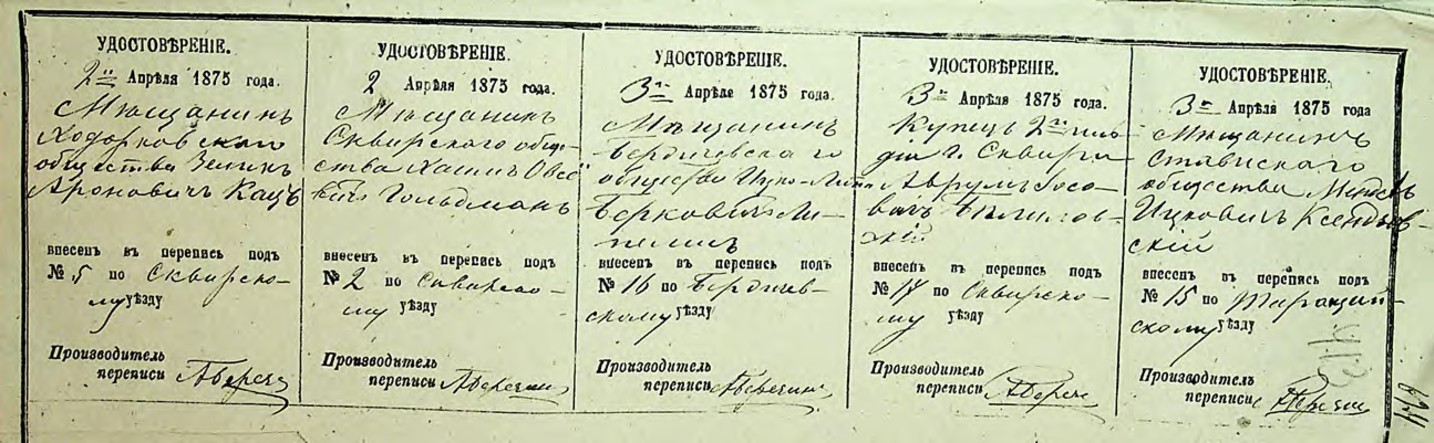 УДОСТОВѢРЕНІЕ.
2го Апрѣля 1875 года.
Мѣщанинъ
Ходорковскаго
общества Зеликъ
Ароновичъ Кацъ
внесенъ въ перепись подъ
№ 5 по Сквирско-
му уѣзду
Производитель
переписи
УДОСТОВѢРЕНІЕ.
2 Апрѣля 1875 года.
Мѣщанинъ
Сквирскаго обще-
ства Овсе
Гольдманъ
внесенъ въ перепись подъ
№ 2 по Сквирско-
му уѣзду
Производитель
переписи
УДОСТОВѢРЕНІЕ.
3го Апрѣля 1875 года.
Мѣщанинъ
Бердичевскаго
общества Ицко-
Берковичъ Ли-
внесенъ въ перепись подъ
№ 16 по Бердичев-
скому уѣзду
Производитель
переписи
УДОСТОВѢРЕНІЕ.
3го Апрѣля 1875 года.
Купецъ 2й гиль-
діи г. Сквири
Аврумъ Іосе-
вичъ
скій
внесенъ въ перепись подъ
№ 14 по Сквирско-
му уѣзду
Производитель
переписи
УДОСТОВѢРЕНІЕ.
3го Апрѣля 1875 года
Мѣщанинъ
Ставискаго
общества
Ицковичъ Ксендзов-
скій
внесенъ въ перепись подъ
№ 15 по Таращан-
скому уѣзду
Производитель
переписи